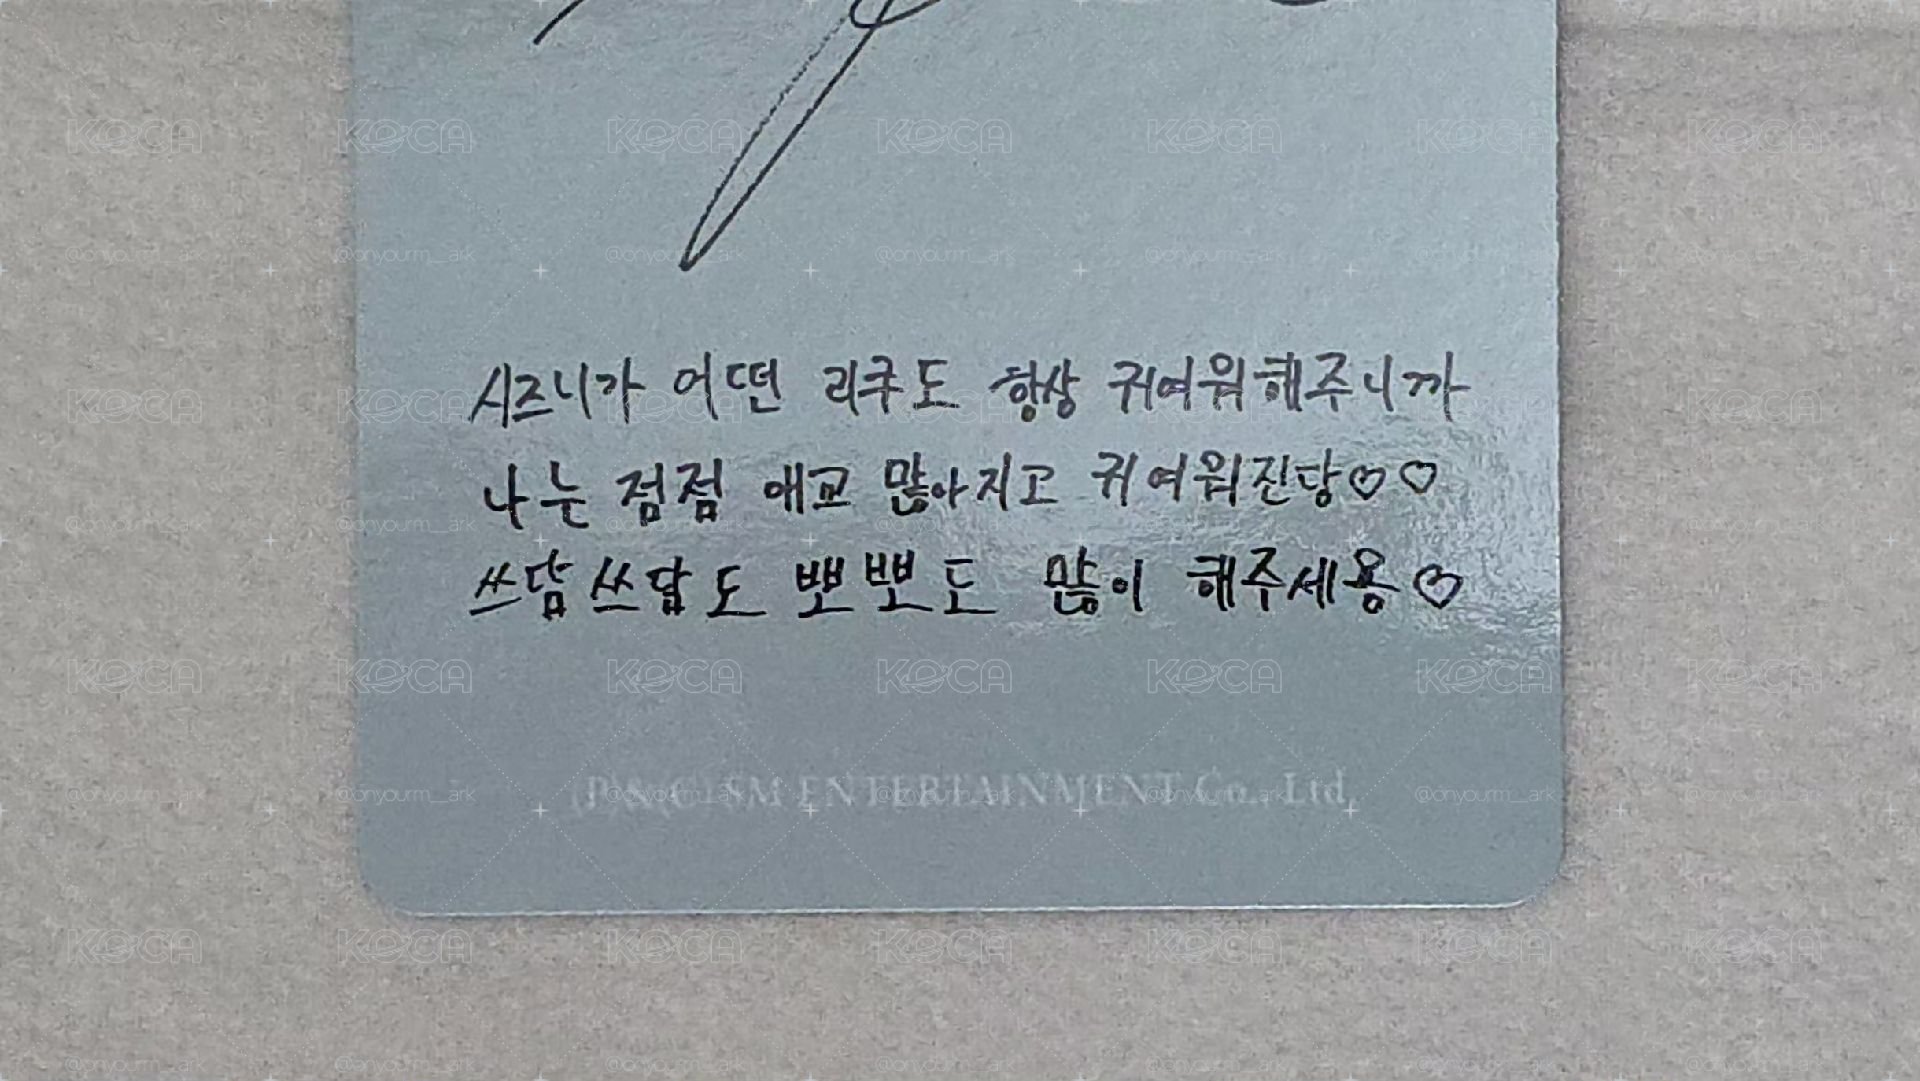 시즈니가 어떤 리쿠도 항상 귀여워해주니까
나는 점점 애교 많아지고 귀여워진당♡♡
쓰담쓰담도 뽀뽀도 많이 해주세용♡
(P)&(C) SM ENTERTAINMENT Co., Ltd.
KOCA
@onyourm__ark